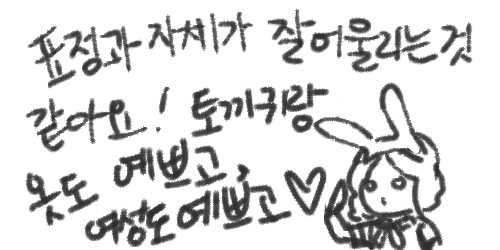 표정과 자세가 잘어울리는것
같아요! 토끼귀랑
옷도 예쁘고,
여성도 예쁘고♡